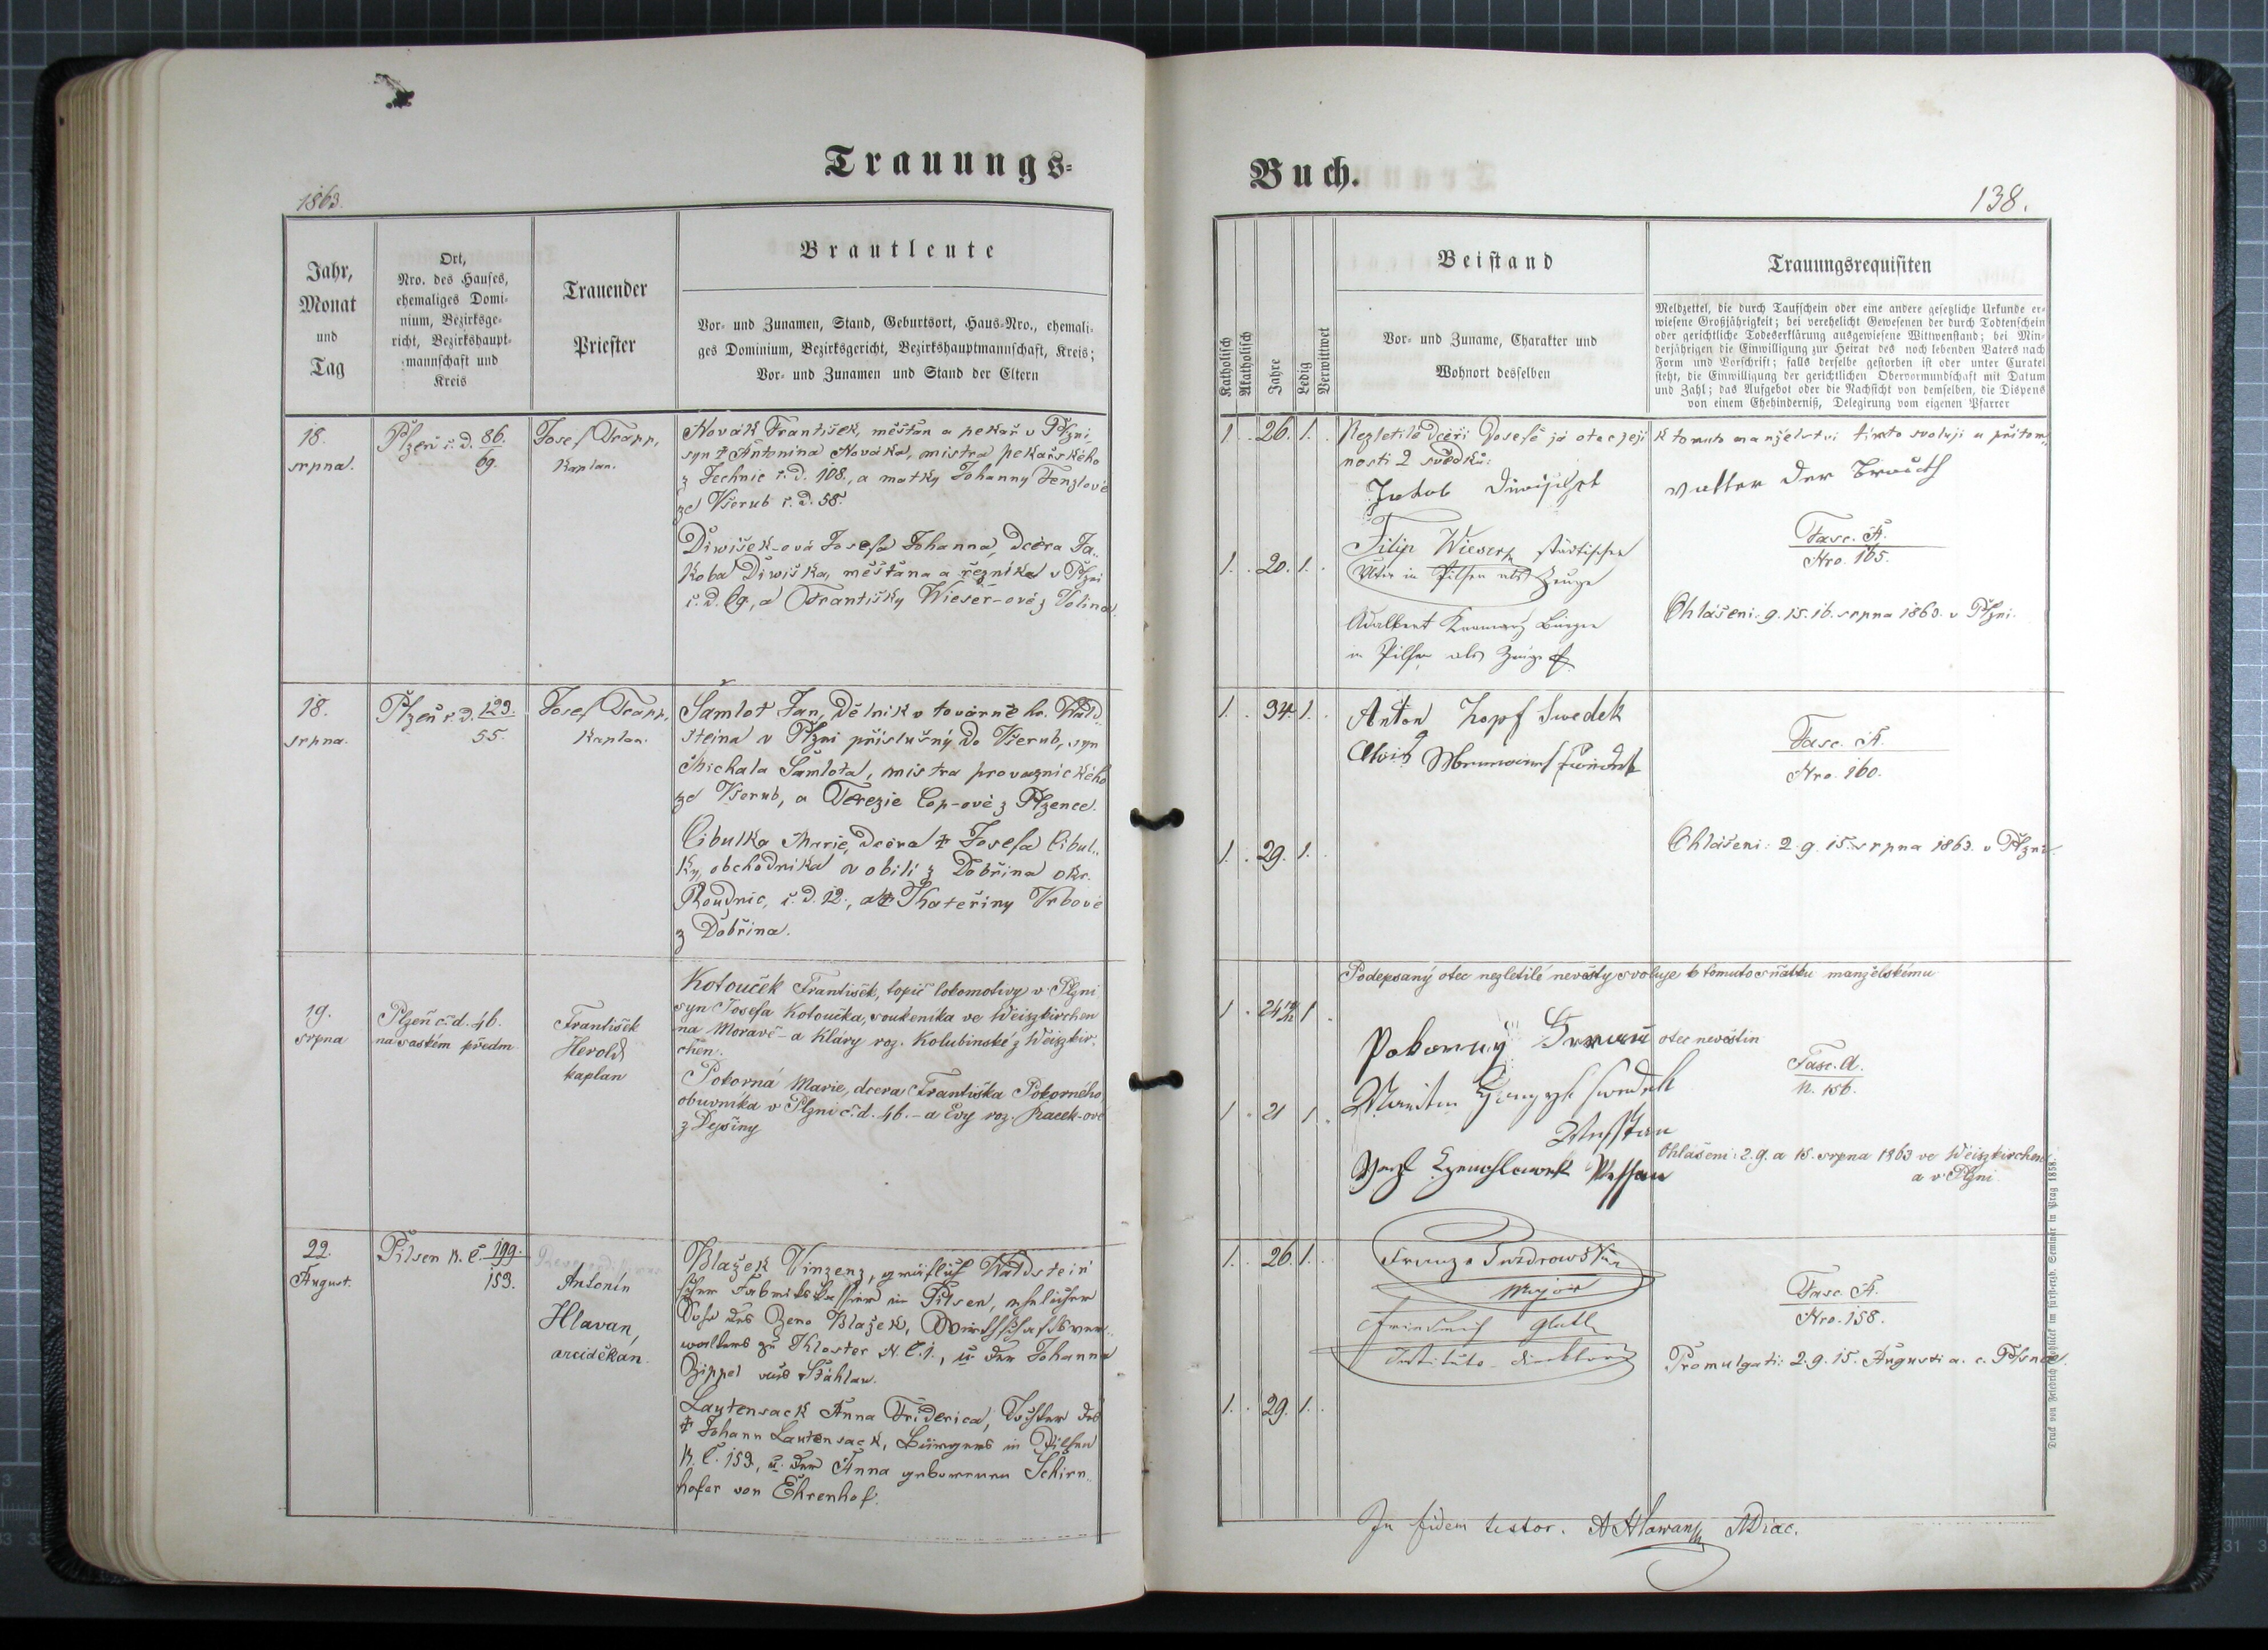 Trauungs-
1863.
Jahr,
Monat
und
Tag
Ort,
Nro. des Hauses,
ehemaliges Domi-
nium, Bezirksge-
richt, Bezirkshaupt-
mannschaft und
Kreis
Trauender
Priester
Brautleute
Vor- und Zunamen, Stand, Geburtsort, Haus-Nro., ehemali-
ges Dominium, Bezirksgericht, Bezirkshauptmannschaft, Kreis;
Vor- und Zunamen und Stand der Eltern
18.
srpna.
Plzeň č. d. 86.
69.
Josef Trapp,
Kaplan.
Novák František, měštan a pekař v Plzni,
syn † Antonina Nováka, mistra pekařského
z Technic č. d. 108., a matky Johanny Fenzlové
ze Všerub č. d. 58.
Diwišek-ová Josefa Johanna, dcera Ja-
koba Diwiška, měštana a řezníka v Plzni
č. d. 69, a Františky Wieser-ové z Volina.
18.
srpna.
Plzeň č. d. 123.
55.
Josef Trapp,
Kaplan.
Šamlot Jan, dělník v továrně hr. Wald-
steina v Plzni příslušný do Všerub, syn
Michala Šamlota, mistra provaznického
ze Všerub, a Terezie Cop-ové z Plzence.
Cibulka Marie, dcera † Josefa Cibul-
ky, obchodníka v obilí z Dobřina okr.
Roudnic, č. d. 12., a † Kateřiny Vrbové
z Dobřina.
19.
srpna
Plzeň č. d. 46.
na saském předm.
František
Herold
kaplan
Kotouček František, topič lokomotivy v Plzni
syn Josefa Kotoučka, soukeníka ve Weiszkirchen
na Moravě - a Kláry roz. Kolubinské z Weiszkir-
chen.
Pokorná Marie, dcera Františka Pokorného
obuvníka v Plzni č. d. 46. - a Evy roz. Kacek-ové
z Dejšiny
22.
August.
Pilsen N. C. 199.
153.
Antonín
Hlavan,
arciděkan.
Blažek Vinzenz, gräflich Waldstein'
scher Fabrikskassier in Pilsen, ehelicher
Sohn des Zeno Blažek, Wirthschaftsver-
walters zu Kloster N. C. 1., u. der Johanna
Zippel aus Stáhlau.
Lautensack Anna Friderica, Tochter des
† Johann Lautensack, Bürgers in Pilsen
N. C. 153., u. der Anna geborenen Schirn-
hofer von Ehrenhof.
Buch.
138.
Katholisch
Akatholisch
Jahre
Ledig
Verwittwet
Beistand
Vor- und Zuname, Charakter und
Wohnort desselben
Trauungsrequisiten
Meldzettel, die durch Taufschein oder eine andere gesetzliche Urkunde er-
wiesene Großjährigkeit; bei verehelicht Gewesenen der durch Todtenschein
oder gerichtliche Todeserklärung ausgewiesene Witwenstand; bei Min-
derjährigen die Einwilligung zur Heirat des noch lebenden Vaters nach
Form und Vorschrift; falls derselbe gestorben ist oder unter Curatel
steht, die Einwilligung der gerichtlichen Obervormundschaft mit Datum
und Zahl; das Aufgebot oder die Nachsicht von demselben, die Dispens
von einem Ehehinderniß, Delegirung vom eigenen Pfarrer
1. 26. 1.
Nezletilé dceři Josefě já otec její k tomuto manželství tímto svoluji u přítom-
nosti 2 svědků:
Jakob Diwischek
Vatter der Brauth
Filip Wieser städtischer
in Pilsen als Zeuge
Adalbert Bürger
in Pilsen als Zeuge
Fasc. A.
Nro. 165.
1. 20. 1.
Ohlášeni: 9. 15. 16. srpna 1863. v Plzni.
1. 34. 1.
Anton Zopf Swedek
Alois
Fasc. A.
Nro. 160.
1. 29. 1.
Ohlášeni: 2. 9. 15. srpna 1863. v Plzni.
Podepsaný otec nezletilé nevěsty svoluje k tomuto sňatku manželskému
1. 24 1
Pokorny otec nevěstin
Fasc. A.
N. 156.
1. 21 1.
Ohlášeni: 2. 9. a 15. srpna 1863 ve Weiszkirchen
a v Plzni
1. 26. 1.
Major
Friedrich Glatt
Instituts-Direktor
Fasc. A.
Nro. 158.
Promulgati: 2. 9. 15. Augusti a. c. Pilsnae.
1. 29. 1.
In fidem testor. A Hlawan ADiac.
Druck von Friedrich Rohliček im fürsterzb. Seminar in Prag 1858.